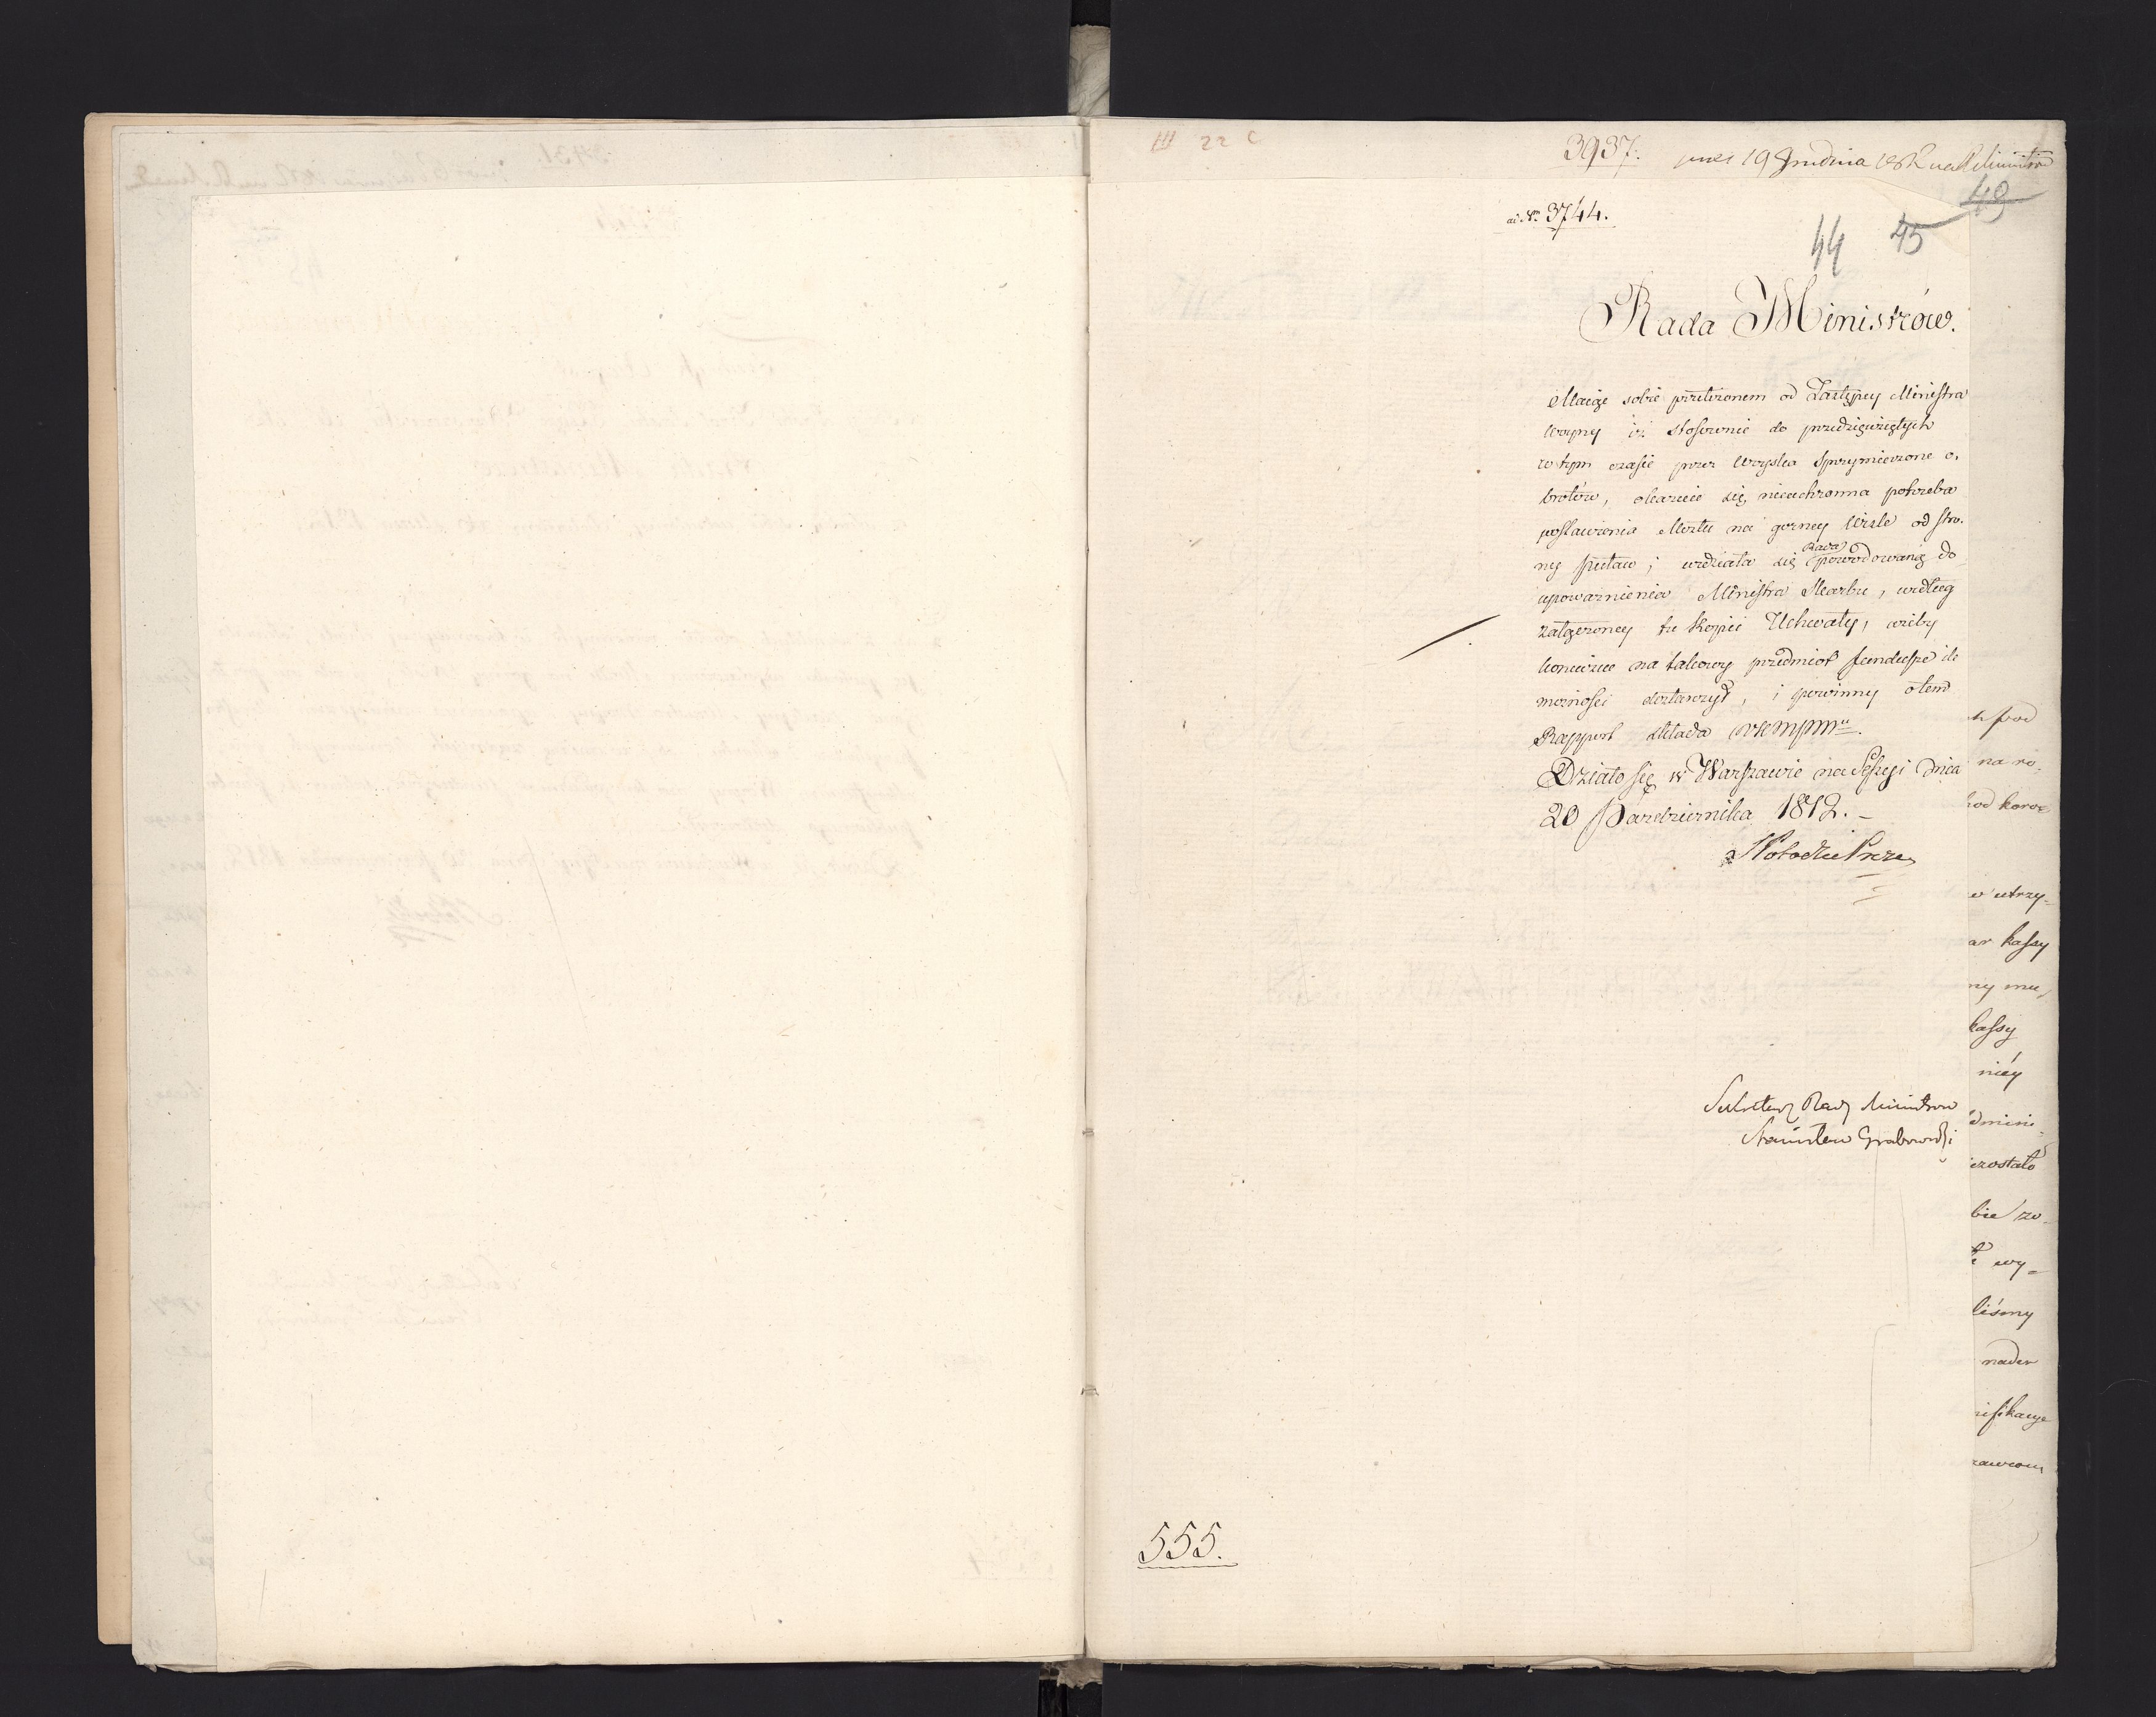 III 22 C
3937.
19 Grudnia
49
ad N. 3744.
44 45
Rada Ministrów.
Maiąc sobie przełożonem od Zastępcy Ministra
Woyny iż stosownie do przedzięwziętych
w tym czasie przez Woyska sprzymierzone o,
brotów, okazuie się nieuchronna potrzeba
postawienia Mostu na gorney Wisle od stro,
ny Puław; widziała się Rada spowodowaną do
upoważnienia Ministra Skarbu, według
załączoney tu Kopii Uchwały, ażeby
konieczne na takowy przedmiot fundusze ile
możności dostarczył, i powinny o tem
Rapport składa
Działo się w Warszawie na Sessyi dnia
20 Października 1812. –
Sekretarz Rady Ministrow
Stanisław Grabowski
555.
na ro,
utrzy,
kassy
ny mu,
kassy
niéy
dmini,
zostało
bie zo,
wy,
liśmy
nader